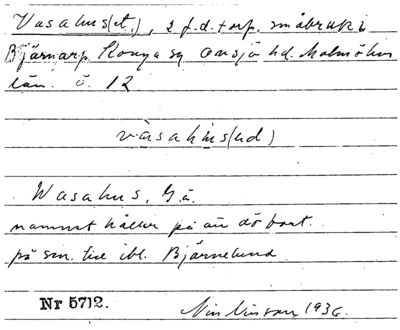 Vasahus(et), 2 f.d. torp. småbruk i
Bjärnarp Konga sn Onsjö hd. Malmöhus
län. ö. 12
vàsahùs(ud)
Wasahus, G.ä.
namnet håller på att dö bort.
på sm. till ibl. Björnelund
Nr 5712.
1936.